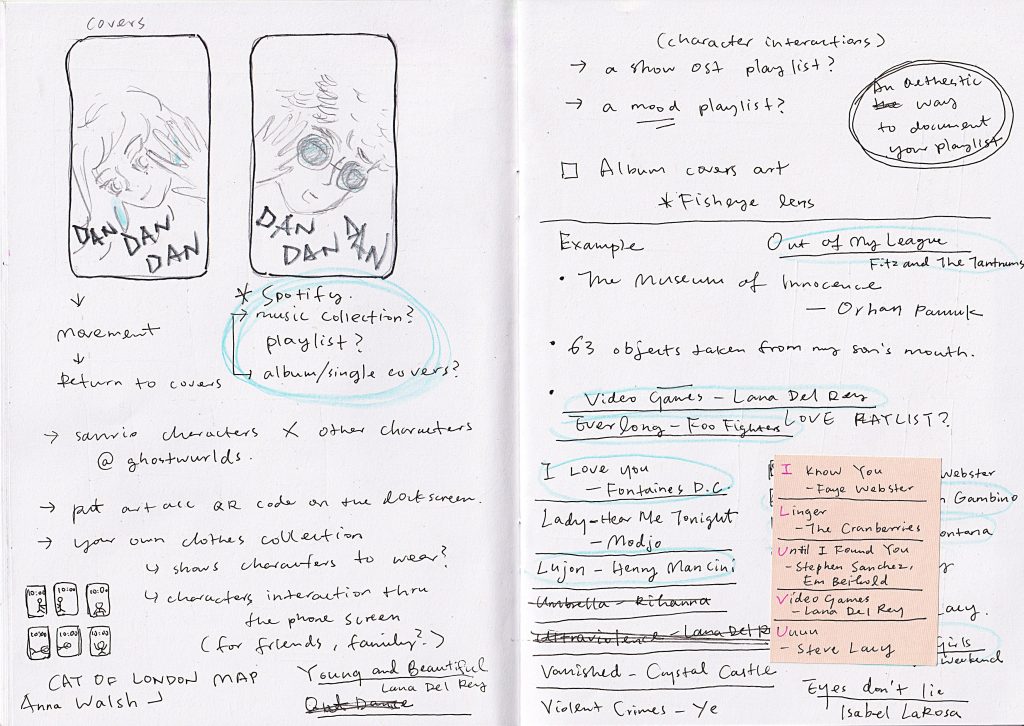 covers
DAN DAN DAN
DAN DAN DAN
↓
movement
↓
Return to covers
* Spotify.
→ music collection?
playlist?
→ album/single covers?
→ sanrio characters X other characters
@ ghostwurlds.
→ put art acc QR code on the lockscreen.
→ your own clothes collection
↳ shows characters to wear?
↳ characters interaction thru
the phone screen
(for friends, family?)
10:00 10:00 10:00
10:00 10:00 10:00
CAT OF LONDON MAP
Anna Walsh
Young and Beautiful
Lana Del Rey
Out Dance
(character interactions)
→ a show OST playlist?
→ a mood playlist?
An aethestic
the way
to document
your playlist
□ Album covers art
* Fisheye lens
Example
Out of My League
Fitz and The Tantrums
• The Museum of Innocence
— Orhan Pamuk
• 63 objects taken from my son's mouth.
• Video Games - Lana Del Rey
Everlong - Foo Fighters LOVE PLAYLIST?
I Love You
- Fontaines D.C
Lady - Hear Me Tonight
- Modjo
Lujon - Henry Mancini
Umbrella - Rihanna
Ultraviolence - Lana Del R
Vanished - Crystal Castle
Violent Crimes - Ye
I Know You
- Faye Webster
Linger
- The Cranberries
Until I Found You
- Stephen Sanchez,
Em Beihold
Video Games
- Lana Del Rey
Uuuu
- Steve Lacy
Webster
Gambino
ontana
Lacy.
Girls
weekend
Eyes don't lie
Isabel LaRosa